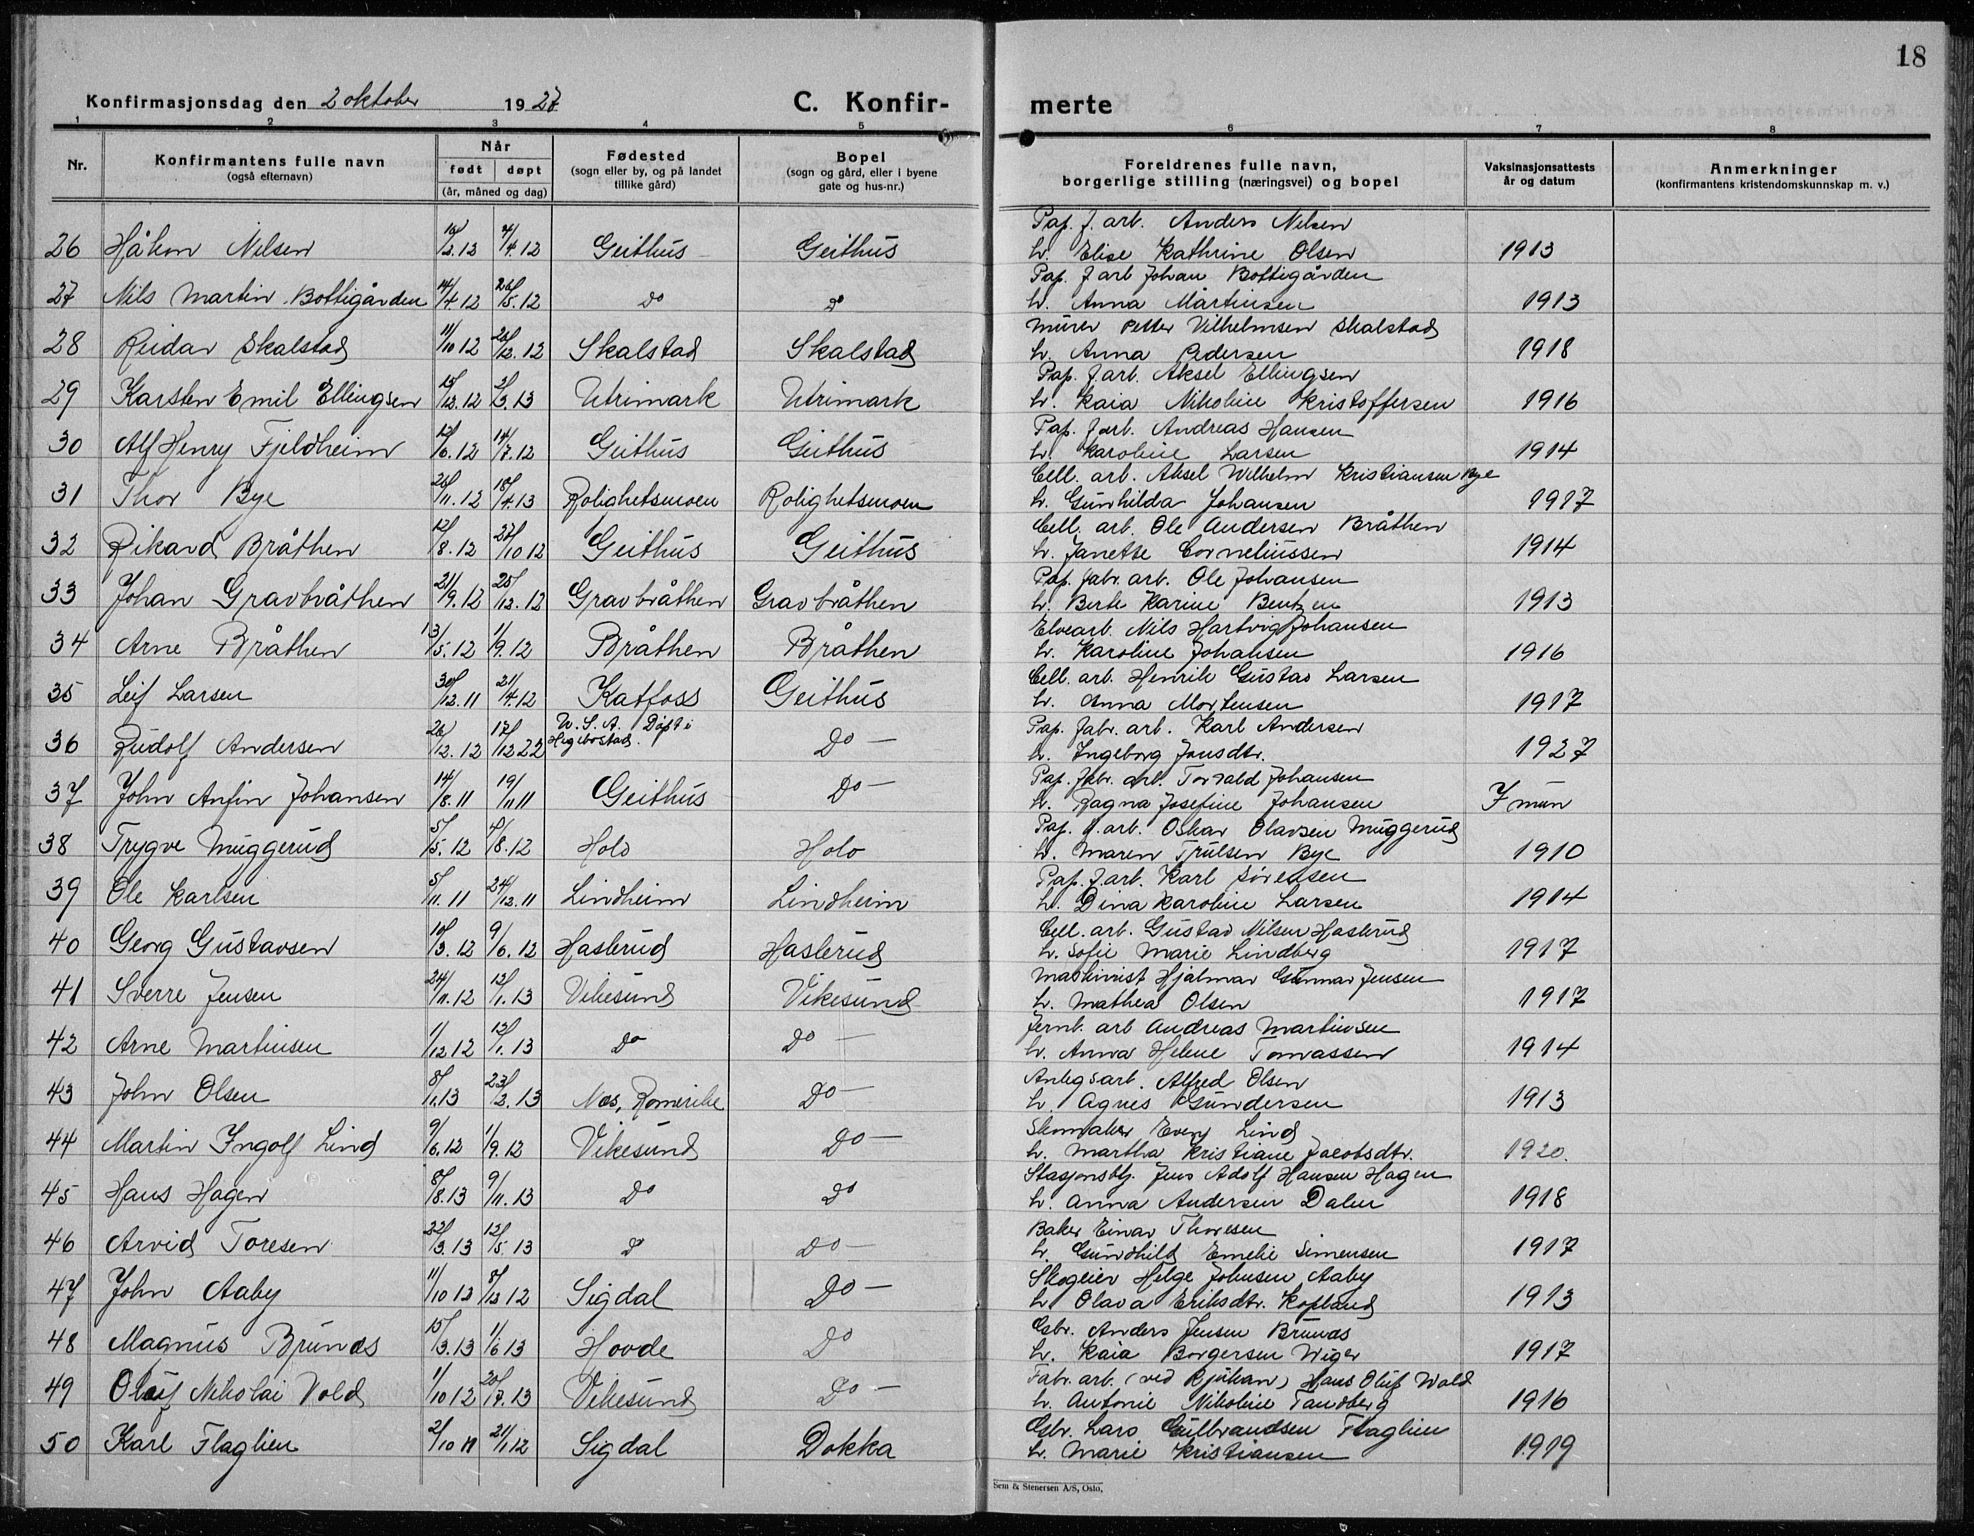 18
Konfirmasjonsdag den 2 oktober 1927 C. Konfir- merte
1 2 3 4 5 6 7 8
Nr. Konfirmantens fulle navn (også efternavn) Når født døpt (år, måned og dag) Fødested (sogn eller by, og på landet tillike gård) Bopel (sogn og gård, eller i byene gate og hus-nr.) Foreldrenes fulle navn, borgerlige stilling (næringsvei) og bopel Vaksinasjonsattests år og datum Anmerkninger (konfirmantens kristendomskunnskap m. v.)
Pap. f. arb. Anders Nilsen
26 Håkon Nilsen /2.12 /4.12 Geithus Geithus h. Elise Kathrine Olsen 1913
Pap. f arb Johan Bottigården
27 Nils Martin Bottigården 14/4.12 26/5.12 do do h. Anna Martinsen 1913
Murer Petter Vilhelmsen Skalstad
28 Reidar Skalstad 11/10 12 26/12.12 Skalstad Skalstad h. Anna Pedersen 1918
Pap. f. arb. Aksel Ellingsen
29 Karsten Emil Ellingsen 15/12.12 2/3.13 Utrimark Utrimark h. Kaia Nikoline Kristoffersen 1916
Pap. f arb. Andreas Hansen
30 Alf Henry Fjeldheim 12/6.12 14/7.12 Geithus Geithus h. Karoline Larsen 1914
Cell. arb. Aksel Wilhelm Kristiansen Bye
31 Thor Bye 26/11.12 18/4.13 Rolighetsmoen Rolighetsmoen h. Gunhilda Johansen 1917
Cell. arb. Ole Andersen Bråthen
32 Rikard Bråthen 12/8.12 27/10 12 Geithus Geithus h. Janette Corneliussen 1914
Pap. fabr. arb. Ole Johansen
33 Johan Gravbråthen 21/9.12 25/12.12 Gravbråthen Gravbråthen h. Berte Karine Bentzen 1913
Elvearb. Nils Hartvig Johansen
34 Arne Bråthen 13/5.12 1/9.12 Bråthen Bråthen h. Karoline Johansen 1916
Cell. arb. Henrik Gustav Larsen
35 Leif Larsen 30/12.11 21/4.12 Katfoss Geithus h. Anna Mortensen 1917
U. S. A. Døpt i Pap. fabr. arb. Karl Andersen
36 Rudolf Andersen 26/12.12 17/12 22 Do — h. Ingeborg Jonsdtr. 1927
Pap. fabr. arb. Torvald Johansen
37 John Anfin Johansen 14/8.11 19/11 11 Geithus Do — h. Ragna Josefine Johansen
Pap. f. arb. Oskar Olavsen Muggerud
38 Trygve Muggerud 5/5.12 4/8.12 Holo Holo h. Maren Trulsen Bye 1910
Pap. f. arb. Karl Sørensen
39 Ole Karlsen 5/11.11 24/12.11 Lindheim Lindheim h. Dina Karoline Larsen 1914
Cell. arb. Gustav Nilsen Haslerud
40 Georg Gustavsen 10/3.12 9/6.12 Haslerud Haslerud h. Sofie Marie Lindberg 1917
Maskinist Hjalmar Gunnar Jensen
41 Sverre Jensen 24/11.12 12/1.13 Vikesund Vikesund h. Mathea Olsen 1917
Jernb. arb Andreas Martinsen
42 Arne Martinsen 1/12 12 12/1.13 do do — h. Anna Helene Tomassen 1914
Anlegsarb. Alfred Olsen
43 John Olsen 8/1.13 23/2.13 Nes, Romerike Do — h. Agnes Gundersen 1913
Skomaker Lind
44 Martin Ingolf Lind 9/6.12 1/9.12 Vikesund Do — h. Martha Kristiane Jacobsdtr. 1920.
Stasjonsbtj. Jens Adolf Hansen Hagen
45 Hans Hagen 8/8.13 9/11.13 do do h. Anna Andersen Dalen 1918
Baker Einar Thoresen
46 Arvid Toresen 22/3.13 12/5.13 do Do — h. Gundhild Emelie Simensen 1917
Skogeier Helge Johnsen Aaby
47 John Aaby 11/10 12 8/12 12 Sigdal Do — h. Olava Eriksdtr. Kopland 1913
Gbr. Anders Jensen Brunæs
48 Magnus Brunæs 15/3.13 1/6 13 Hovde Do h. Kaia Borgersen Wiger 1917
Fabr. arb. (ved Rjukan) Hans Oluf Wold
49 Oluf Nikolai Vold 1/10 12 20/7.13 Vikesund Do — h. Antonie Nikoline Tandberg 1916
Gbr. Lars Gulbrandsen Flaglien
50 Karl Flaglien 2/10 11 21/1 12 Sigdal Dokka h. Marie Kristiansen 1919
Sem & Stenersen A/S, Oslo.